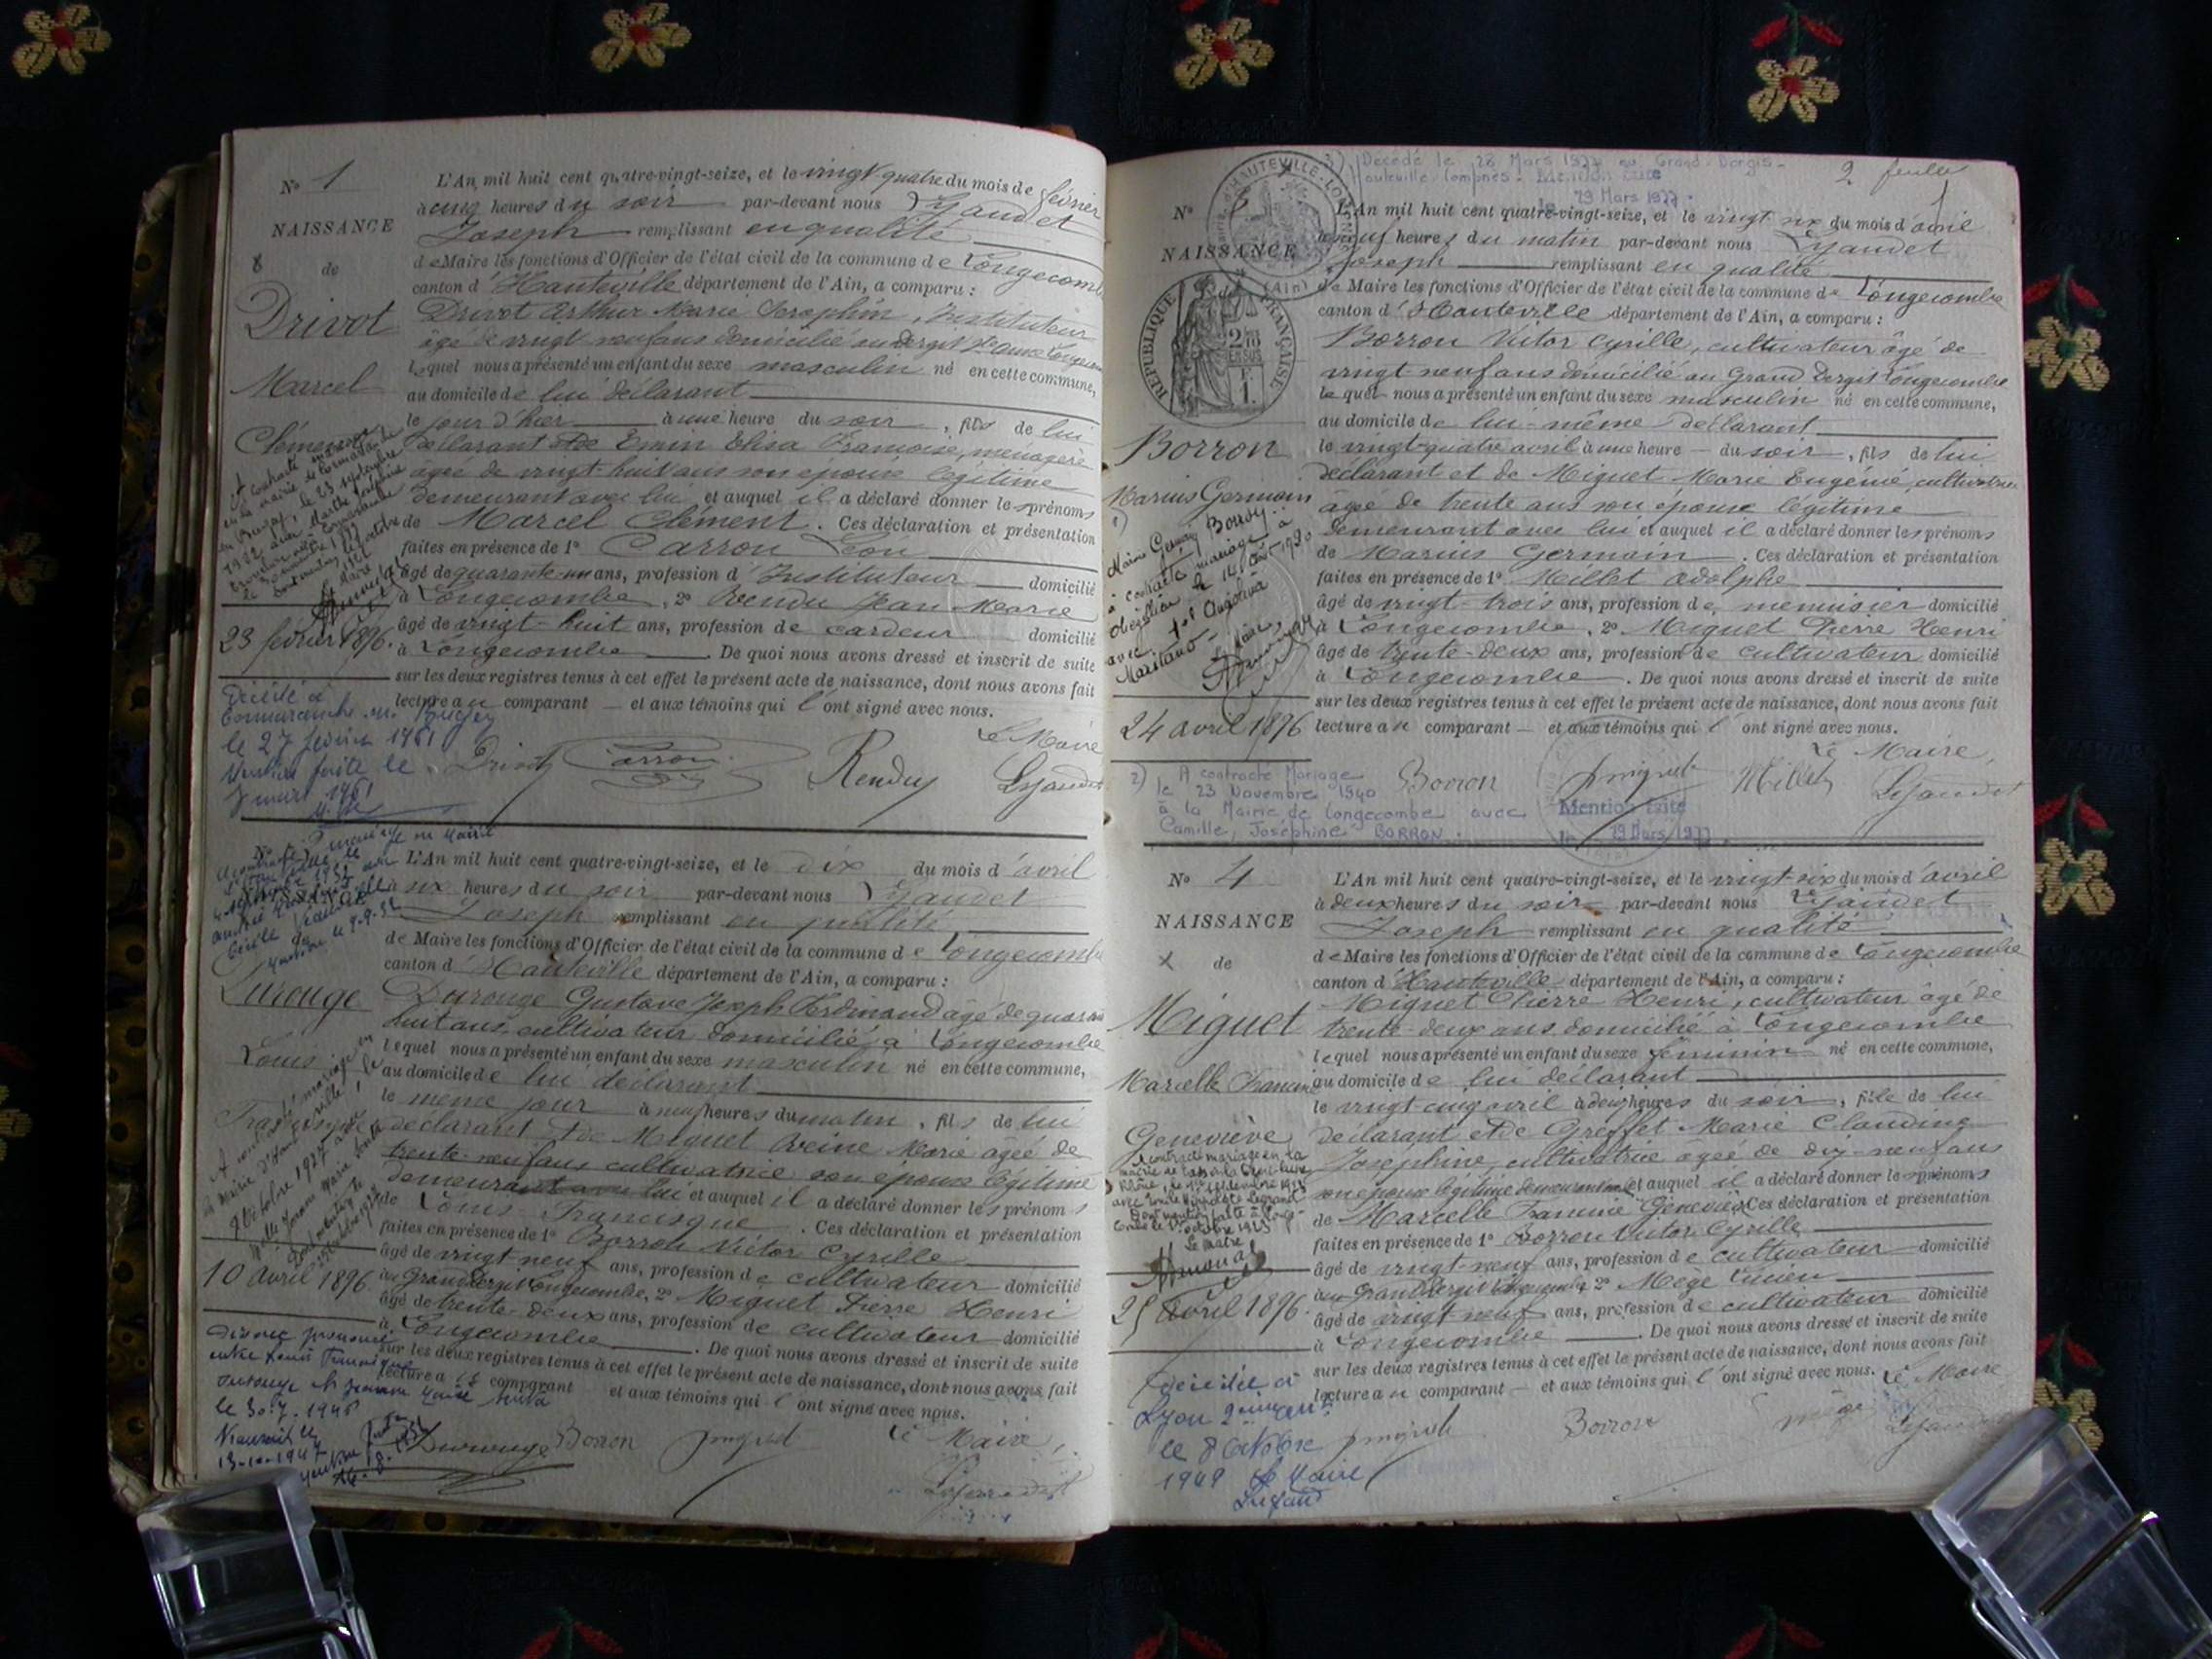 N° 1
NAISSANCE
de
Drivot
Marcel
Clément
23 février 1896.
Décédé à
le 27 février 1961
Mention faite le
7 mars 1961
L'An mil huit cent quatre-vingt-seize, et le vingt quatre du mois de février
à cinq heures du soir par-devant nous Lyaudet
Joseph remplissant en qualité
de Maire les fonctions d'Officier de l'état civil de la commune de Longecombe
canton d'Hauteville département de l'Ain, a comparu :
Drivot Arthur Marie Séraphin, Instituteur
âgé de vingt neuf ans domicilié au Dergit
lequel nous a présenté un enfant du sexe masculin né en cette commune,
au domicile de lui déclarant
le jour d'hier à une heure du soir, fils de lui
déclarant et de Emin Elisa Françoise, ménagère
âgée de vingt-huit ans son épouse légitime
demeurant avec lui et auquel il a déclaré donner les prénoms
de Marcel Clément. Ces déclaration et présentation
faites en présence de 1° Carron Léon
âgé de quarante-un ans, profession d'Instituteur domicilié
à Longecombe, 2° Rendu Jean Marie
âgé de vingt-huit ans, profession de cardeur domicilié
à Longecombe. De quoi nous avons dressé et inscrit de suite
sur les deux registres tenus à cet effet le présent acte de naissance, dont nous avons fait
lecture au comparant et aux témoins qui l'ont signé avec nous.
Le Maire
Drivot Carron Rendu Lyaudet
N°
NAISSANCE
de
Durouge
Louis
Francisque
10 avril 1896.
L'An mil huit cent quatre-vingt-seize, et le dix du mois d'avril
à six heures du soir par-devant nous Lyaudet
Joseph remplissant en qualité
de Maire les fonctions d'Officier de l'état civil de la commune de Longecombe
canton d'Hauteville département de l'Ain, a comparu :
Durouge Gustave Joseph Ferdinand âgé de quarante
huit ans, cultivateur domicilié à Longecombe
lequel nous a présenté un enfant du sexe masculin né en cette commune,
au domicile de lui déclarant
le même jour à neuf heures du matin, fils de lui
déclarant et de Miguet Reine Marie âgée de
trente-neuf ans cultivatrice son épouse légitime
demeurant avec lui et auquel il a déclaré donner les prénoms
de Louis Francisque. Ces déclaration et présentation
faites en présence de 1° Borron Victor Cyrille
âgé de vingt neuf ans, profession de cultivateur domicilié
au Grand Dergit Longecombe, 2° Miguet Pierre Henri
âgé de trente-deux ans, profession de cultivateur domicilié
à Longecombe. De quoi nous avons dressé et inscrit de suite
sur les deux registres tenus à cet effet le présent acte de naissance, dont nous avons fait
lecture au comparant et aux témoins qui l'ont signé avec nous.
Divorce prononcé
entre Louis Francisque
Durouge et Jeanne Marie
le 30.7.1946
Durouge Borron Le Maire
Lyaudet
2e feuille
3) Décédé le 28 Mars 1977 au Grand-Dergis-
Hauteville-Lompnes - Mention faite
le 29 Mars 1977.
MAIRIE D'HAUTEVILLE-LOMPNES
(Ain)
N°
NAISSANCE
RÉPUBLIQUE FRANÇAISE
Borron
Marius Germain
1)
24 avril 1896
L'An mil huit cent quatre-vingt-seize, et le vingt six du mois d'avril
à neuf heures du matin par-devant nous Lyaudet
Joseph remplissant en qualité
de Maire les fonctions d'Officier de l'état civil de la commune de Longecombe
canton d'Hauteville département de l'Ain, a comparu :
Borron Victor Cyrille, cultivateur âgé de
vingt-neuf ans domicilié au Grand Dergit Longecombe
lequel nous a présenté un enfant du sexe masculin né en cette commune,
au domicile de lui-même déclarant
le vingt-quatre avril à une heure du soir, fils de lui
déclarant et de Miguet Marie Eugénie, cultivatrice
âgée de trente ans son épouse légitime
demeurant avec lui et auquel il a déclaré donner les prénoms
de Marius Germain. Ces déclaration et présentation
faites en présence de 1° Millet Adolphe
âgé de vingt-trois ans, profession de menuisier domicilié
à Longecombe, 2° Miguet Pierre Henri
âgé de trente-deux ans, profession de cultivateur domicilié
à Longecombe. De quoi nous avons dressé et inscrit de suite
sur les deux registres tenus à cet effet le présent acte de naissance, dont nous avons fait
lecture au comparant et aux témoins qui l'ont signé avec nous.
Le Maire,
Borron Miguet Millet Lyaudet
2) A contracté Mariage
le 23 Novembre 1940
à la Mairie de Longecombe avec
Camille, Joséphine BORRON.
Mention faite
le 29 Mars 1977
N° 4
NAISSANCE
de
Miguet
Marcelle Francine
Geneviève
25 avril 1896.
L'An mil huit cent quatre-vingt-seize, et le vingt-six du mois d'avril
à deux heures du soir par-devant nous Lyaudet
Joseph remplissant en qualité
de Maire les fonctions d'Officier de l'état civil de la commune de Longecombe
canton d'Hauteville département de l'Ain, a comparu :
Miguet Pierre Henri, cultivateur âgé de
trente-deux ans domicilié à Longecombe
lequel nous a présenté un enfant du sexe féminin né en cette commune,
au domicile de lui déclarant
le vingt-cinq avril à deux heures du soir, fille de lui
déclarant et de Greffet Marie Claudine
Joséphine, cultivatrice âgée de dix-neuf ans
son épouse légitime demeurant et auquel il a déclaré donner les prénoms
de Marcelle Francine Geneviève Ces déclaration et présentation
faites en présence de 1° Borron Victor Cyrille
âgé de vingt-neuf ans, profession de cultivateur domicilié
au Grand Dergit Longecombe 2° Mège Lucien
âgé de vingt neuf ans, profession de cultivateur domicilié
à Longecombe. De quoi nous avons dressé et inscrit de suite
sur les deux registres tenus à cet effet le présent acte de naissance, dont nous avons fait
lecture au comparant et aux témoins qui l'ont signé avec nous. Le Maire
Décédée à
Lyon 2ème arrt
le 8 Octobre
1949 Le Maire
Miguet Borron Mège Lyaudet